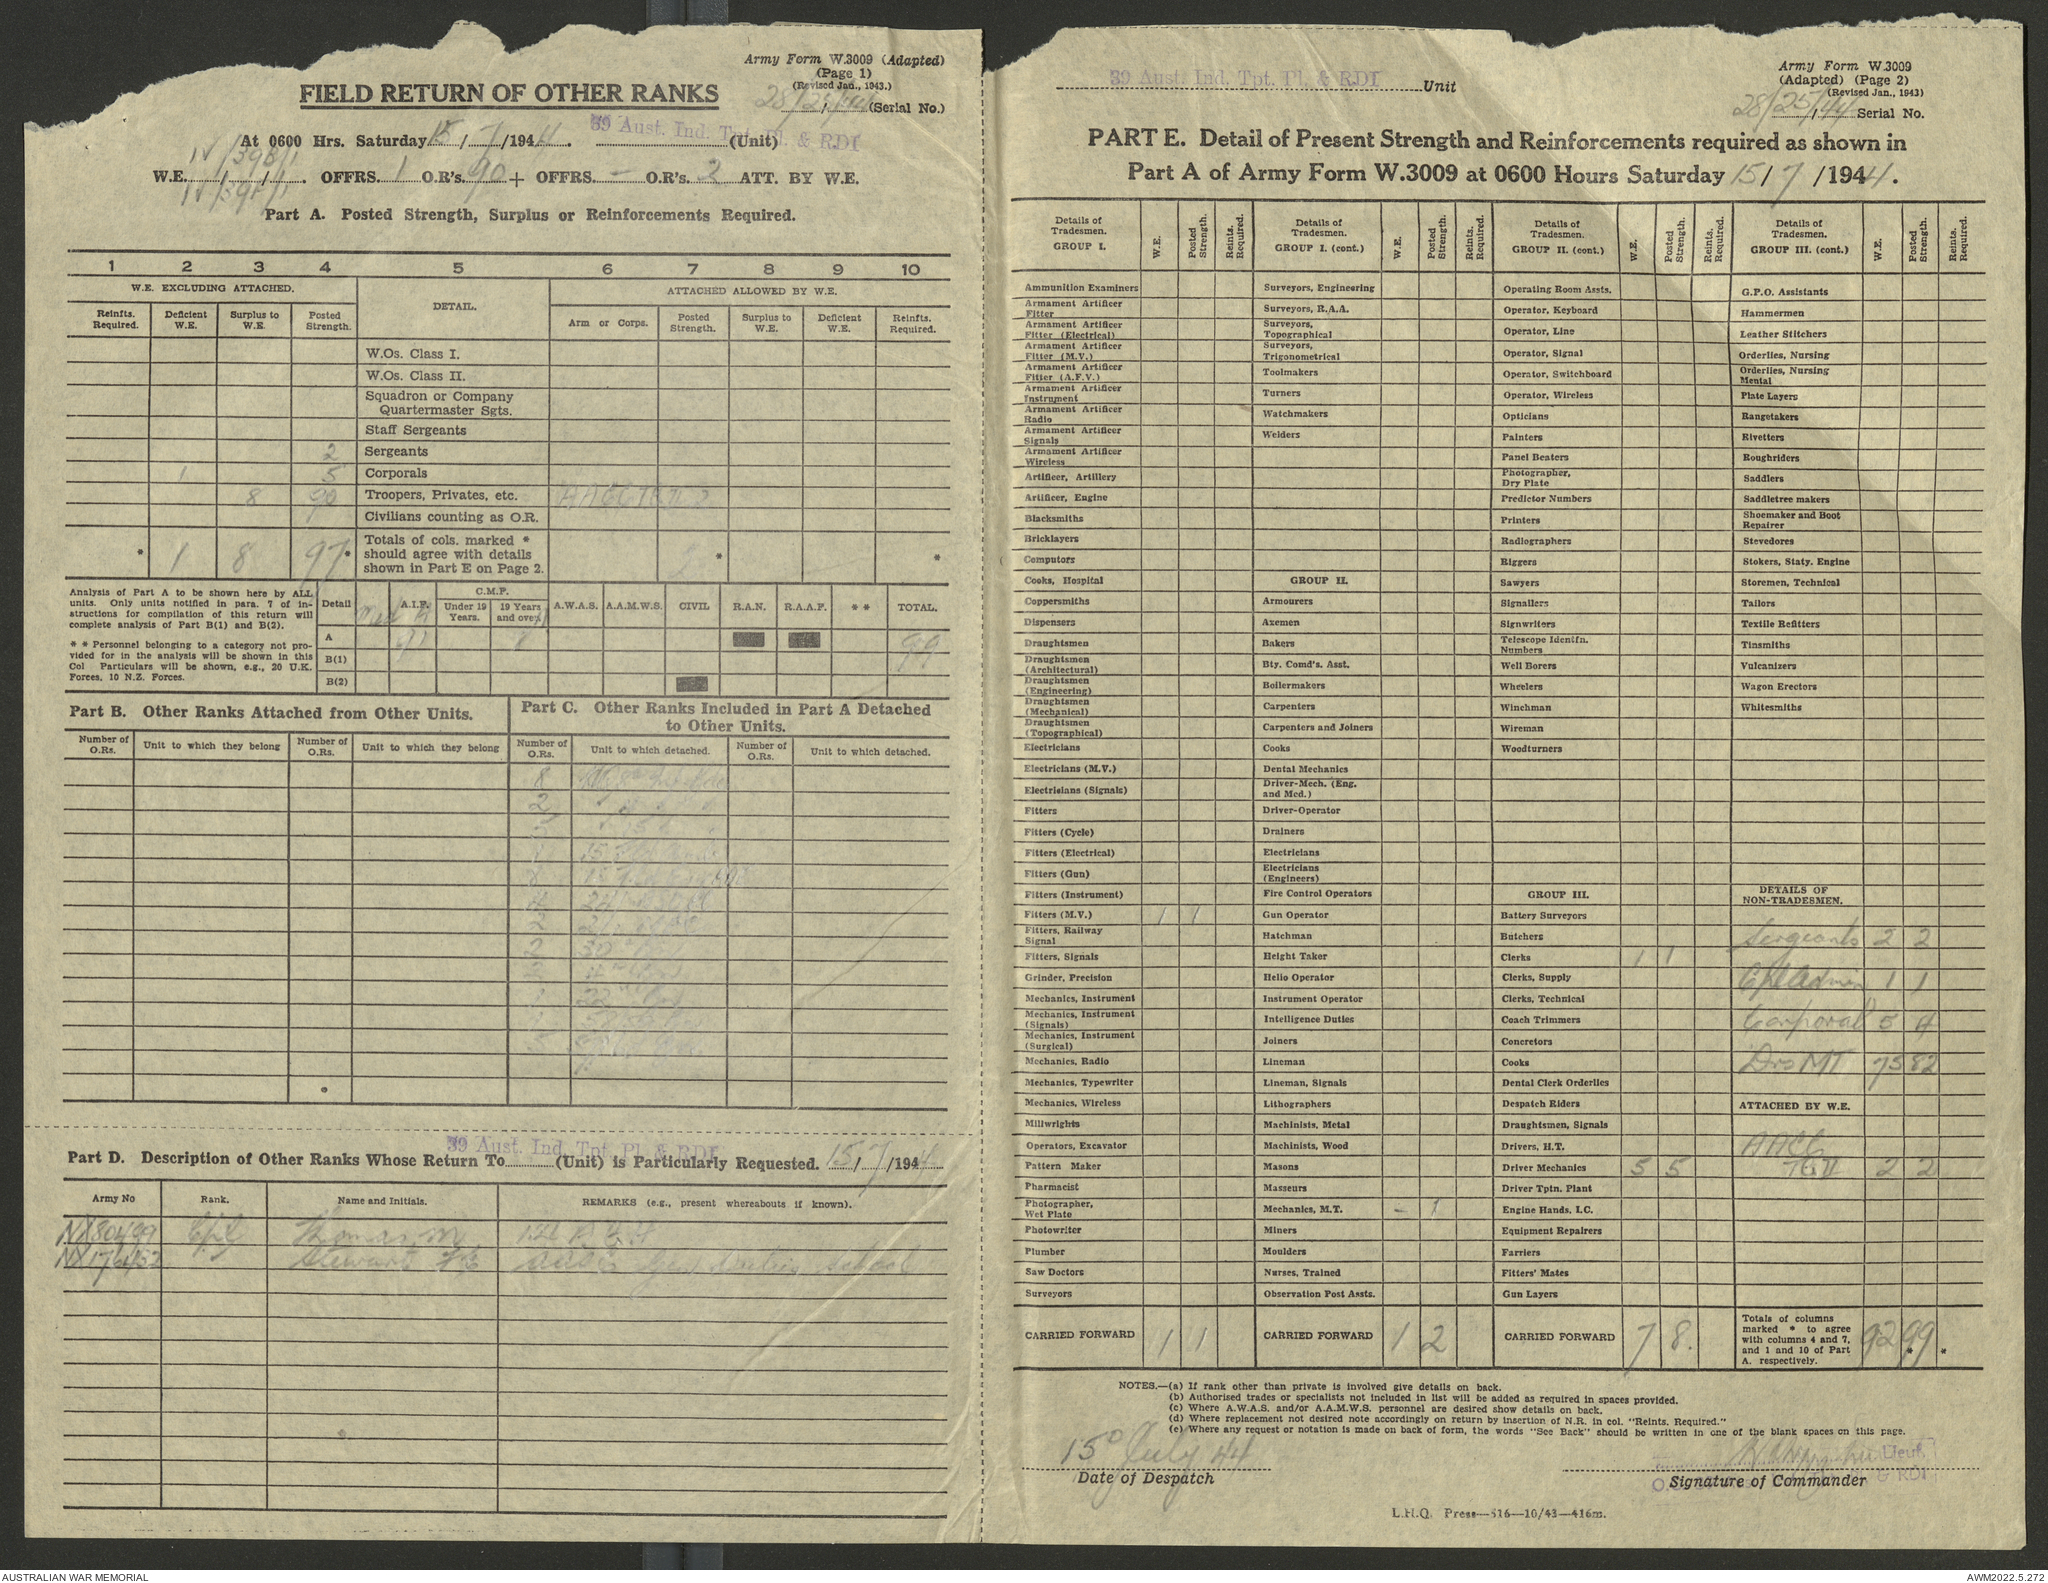 Army Form W.3009 (Adapted)
(Page 1)
(Revised Jan., 1943.)
FIELD RETURN OF OTHER RANKS
28/25/44 (Serial No.)
At 0600 Hrs. Saturday 15/7/1944. 39 Aust. Ind. Tpt. Pl. & RDI (Unit)
IV/39B/1
W.E. OFFRS. 1 O.R's. 90 + OFFRS. - O.R's. 2 ATT. BY W.E.
Part A. Posted Strength, Surplus or Reinforcements Required.
1 2 3 4 5 6 7 8 9 10
W.E. EXCLUDING ATTACHED. DETAIL. ATTACHED ALLOWED BY W.E.
Reinfts. Required. Deficient W.E. Surplus to W.E. Posted Strength. Arm or Corps. Posted Strength. Surplus to W.E. Deficient W.E. Reinfts. Required.
W.Os. Class I.
W.Os. Class II.
Squadron or Company
Quartermaster Sgts.
Staff Sergeants
2 Sergeants
1 5 Corporals
8 90 Troopers, Privates, etc. AACC TG II 2
Civilians counting as O.R.
Totals of cols. marked *
* 1 8 97* should agree with details * *
shown in Part E on Page 2.
Analysis of Part A to be shown here by ALL
units. Only units notified in para. 7 of in-
structions for compilation of this return will
complete analysis of Part B(1) and B(2).
* * Personnel belonging to a category not pro-
vided for in the analysis will be shown in this
Col Particulars will be shown, e.g., 20 U.K.
Forces, 10 N.Z. Forces.
Detail A.I.F. C.M.F. Under 19 Years. 19 Years and over. A.W.A.S. A.A.M.W.S. CIVIL R.A.N. R.A.A.F. * * TOTAL.
A 91 8 99
B(1)
B(2)
Part B. Other Ranks Attached from Other Units.
Part C. Other Ranks Included in Part A Detached
to Other Units.
Number of O.Rs. Unit to which they belong Number of O.Rs. Unit to which they belong Number of O.Rs. Unit to which detached. Number of O.Rs. Unit to which detached.
8
2
15
2
2 30
22
39 Aust. Ind. Tpt. Pl. & RDI
Part D. Description of Other Ranks Whose Return To (Unit) is Particularly Requested. 15/7/1944
Army No Rank. Name and Initials. REMARKS (e.g., present whereabouts if known).
NX80499 Cpl Thomas M
NX176452 Stewart School
39 Aust. Ind. Tpt. Pl. & RDI Unit
Army Form W.3009
(Adapted) (Page 2)
(Revised Jan., 1943)
28/25/44 Serial No.
PART E. Detail of Present Strength and Reinforcements required as shown in
Part A of Army Form W.3009 at 0600 Hours Saturday 15/7/1944.
Details of Tradesmen. GROUP I. W.E. Posted Strength. Reints. Required.
Ammunition Examiners
Armament Artificer Fitter
Armament Artificer Fitter (Electrical)
Armament Artificer Fitter (M.V.)
Armament Artificer Fitter (A.F.V.)
Armament Artificer Instrument
Armament Artificer Radio
Armament Artificer Signals
Armament Artificer Wireless
Artificer, Artillery
Artificer, Engine
Blacksmiths
Bricklayers
Computors
Cooks, Hospital
Coppersmiths
Dispensers
Draughtsmen
Draughtsmen (Architectural)
Draughtsmen (Engineering)
Draughtsmen (Mechanical)
Draughtsmen (Topographical)
Electricians
Electricians (M.V.)
Electricians (Signals)
Fitters
Fitters (Cycle)
Fitters (Electrical)
Fitters (Gun)
Fitters (Instrument)
Fitters (M.V.) 1 1
Fitters, Railway Signal
Fitters, Signals
Grinder, Precision
Mechanics, Instrument
Mechanics, Instrument (Signals)
Mechanics, Instrument (Surgical)
Mechanics, Radio
Mechanics, Typewriter
Mechanics, Wireless
Millwrights
Operators, Excavator
Pattern Maker
Pharmacist
Photographer, Wet Plate
Photowriter
Plumber
Saw Doctors
Surveyors
CARRIED FORWARD 1 1
Details of Tradesmen. GROUP I. (cont.) W.E. Posted Strength. Reints. Required.
Surveyors, Engineering
Surveyors, R.A.A.
Surveyors, Topographical
Surveyors, Trigonometrical
Toolmakers
Turners
Watchmakers
Welders
GROUP II.
Armourers
Axemen
Bakers
Bty. Comd's. Asst.
Boilermakers
Carpenters
Carpenters and Joiners
Cooks
Dental Mechanics
Driver-Mech. (Eng. and Med.)
Driver-Operator
Drainers
Electricians
Electricians (Engineers)
Fire Control Operators
Gun Operator
Hatchman
Height Taker
Helio Operator
Instrument Operator
Intelligence Duties
Joiners
Lineman
Lineman, Signals
Lithographers
Machinists, Metal
Machinists, Wood
Masons
Masseurs
Mechanics, M.T. - 1
Miners
Moulders
Nurses, Trained
Observation Post Assts.
CARRIED FORWARD 1 2
Details of Tradesmen. GROUP II. (cont.) W.E. Posted Strength. Reints. Required.
Operating Room Assts.
Operator, Keyboard
Operator, Line
Operator, Signal
Operator, Switchboard
Operator, Wireless
Opticians
Painters
Panel Beaters
Photographer, Dry Plate
Predictor Numbers
Printers
Radiographers
Riggers
Sawyers
Signallers
Signwriters
Telescope Identfn. Numbers
Well Borers
Wheelers
Winchman
Wireman
Woodturners
GROUP III.
Battery Surveyors
Butchers
Clerks 1 1
Clerks, Supply
Clerks, Technical
Coach Trimmers
Concretors
Cooks
Dental Clerk Orderlies
Despatch Riders
Draughtsmen, Signals
Drivers, H.T.
Driver Mechanics 5 5
Driver Tptn. Plant
Engine Hands, I.C.
Equipment Repairers
Farriers
Fitters' Mates
Gun Layers
CARRIED FORWARD 7 8.
Details of Tradesmen. GROUP III. (cont.) W.E. Posted Strength. Reints. Required.
G.P.O. Assistants
Hammermen
Leather Stitchers
Orderlies, Nursing
Orderlies, Nursing Mental
Plate Layers
Rangetakers
Rivetters
Roughriders
Saddlers
Saddletree makers
Shoemaker and Boot Repairer
Stevedores
Stokers, Staty. Engine
Storemen, Technical
Tailors
Textile Refitters
Tinsmiths
Vulcanizers
Wagon Erectors
Whitesmiths
DETAILS OF NON-TRADESMEN.
Sergeants 2 2
Cpl Admin 1 1
Corporal 5 4
Drs MT 75 82
ATTACHED BY W.E.
AACC
TG II 2 2
Totals of columns marked * to agree with columns 4 and 7, and 1 and 10 of Part A. respectively. 92 99 * *
NOTES.—(a) If rank other than private is involved give details on back.
(b) Authorised trades or specialists not included in list will be added as required in spaces provided.
(c) Where A.W.A.S. and/or A.A.M.W.S. personnel are desired show details on back.
(d) Where replacement not desired note accordingly on return by insertion of N.R. in col. "Reints. Required."
(e) Where any request or notation is made on back of form, the words "See Back" should be written in one of the blank spaces on this page.
15 July 44
Date of Despatch
Lieut
Signature of Commander
& RDI
L.H.Q. Press—516—10/43—416m.
AUSTRALIAN WAR MEMORIAL
AWM2022.5.272